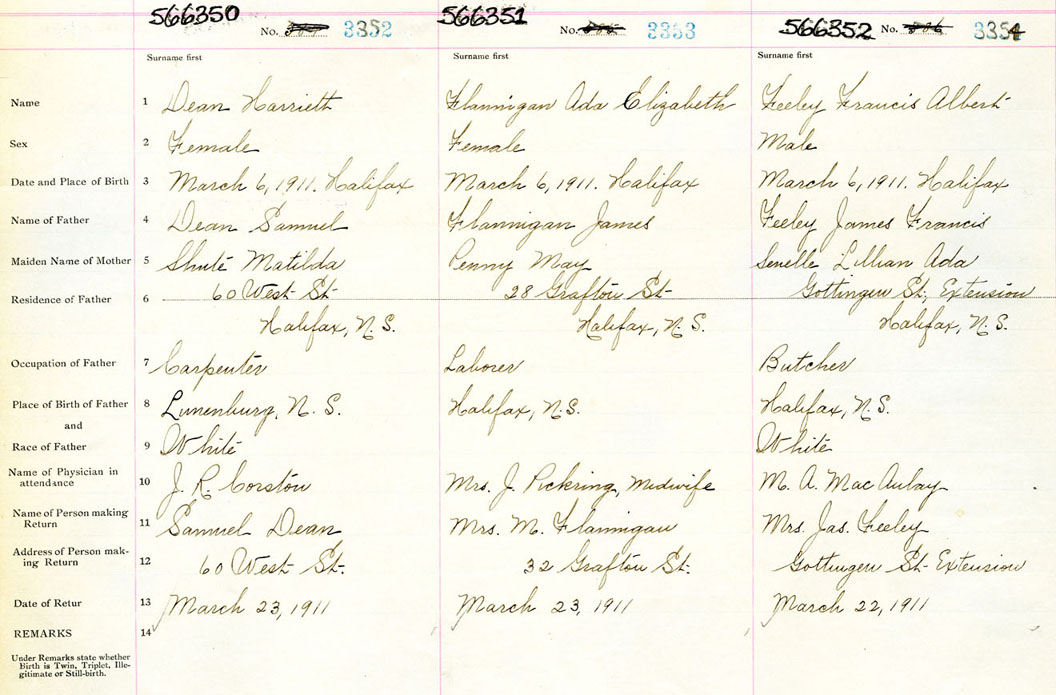 566350 566351 566352
No. 3352 No. 3353 No. 3354
Surname first Surname first Surname first
Name 1 Dean Harriett Flannigan Ada Elizabeth Feeley Francis Albert
Sex 2 Female Female Male
Date and Place of Birth 3 March 6, 1911. Halifax March 6, 1911. Halifax March 6, 1911. Halifax
Name of Father 4 Dean Samuel Flannigan James Feeley James Francis
Maiden Name of Mother 5 Shute Matilda Penny May Lillian Ada
Residence of Father 6 60 West St. 28 Grafton St. Gottingen St., Extension
Halifax, N.S. Halifax, N.S. Halifax, N.S.
Occupation of Father 7 Carpenter Laborer Butcher
Place of Birth of Father 8 Lunenburg, N.S. Halifax, N.S. Halifax, N.S.
and
Race of Father 9 White White
Name of Physician in
attendance 10 J. R. Corston Mrs. J. Pickring, Midwife M. A. MacAulay
Name of Person making
Return 11 Samuel Dean Mrs. M. Flannigan Mrs. Jas. Feeley
Address of Person mak-
ing Return 12 60 West St. 32 Grafton St. Gottingen St. Extension
Date of Retur 13 March 23, 1911 March 23, 1911 March 22, 1911
REMARKS 14
Under Remarks state whether
Birth is Twin, Triplet, Ille-
gitimate or Still-birth.